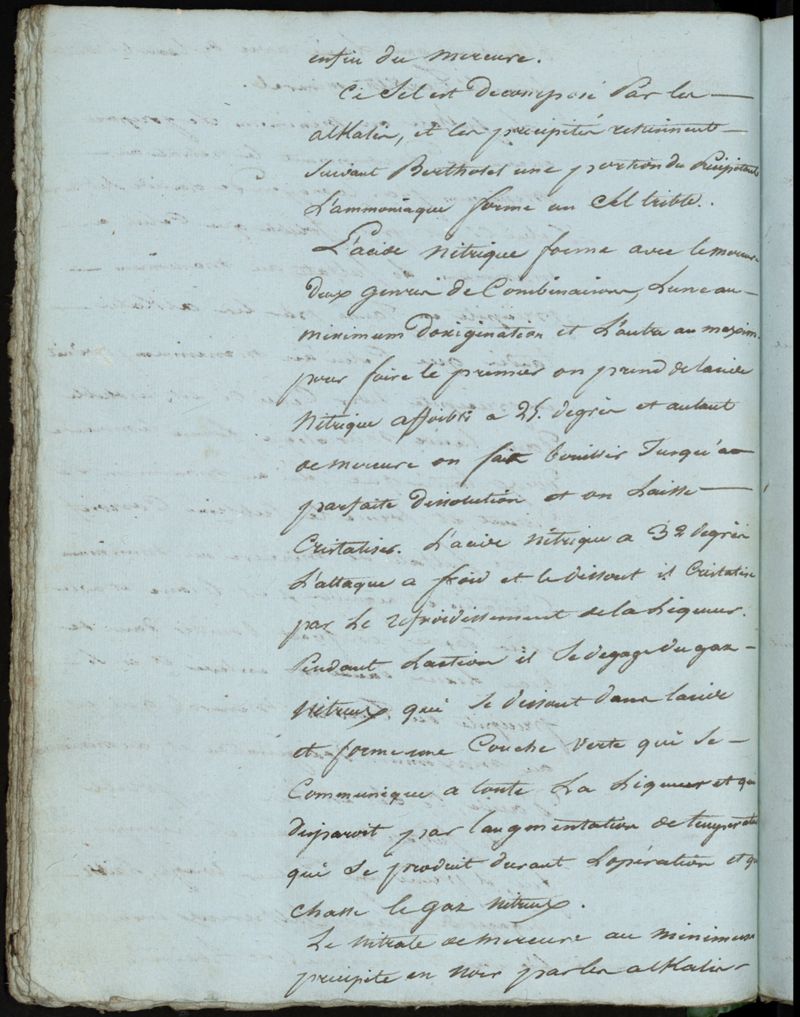 enfin du mercure.
Ce Sel est Decomposé Par les
alKalis, et les precipités retiennent
Suivant Berthotel une portion du Précipitant
L'ammoniaque forme un Sel trible.
L'acide Nitrique forme avec le mercure
Deux genres de Combinaisons, L'une au
minimum D'oxigination et L'autre au maxim.
pour faire le premier on prend de l'acide
Nitrique affoibli a 25. degrés et autant
de mercure on fait bouillir Jusqu'a
parfaite Dissolution et on Laisse
Cristaliser. L'acide Nitrique a 32 degrés
L'attaque a froid et le Dissout il Cristalise
par Le refroidissement de la Liqueur.
Pendant L'action il Se degage Du gaz
Nitreux qui Se dissout dans l'acide
et forme une Couche verte qui Se
Communique a toute La Liqueur et qui
Disparoit par l'augmentation de temperature
qui Se produit durant L'opération et qui
chasse le gaz Nitreux.
Le Nitrate de mercure au minimum
precipite en Noir par les alKalis